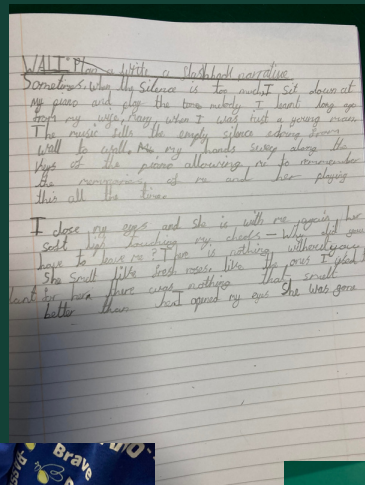 WALT: Plan & Write a flashback narrative
Sometimes, when the silence is too much I sit down at
my piano and play the tune melody I learnt long ago
from my wife, Mary, when I was just a young man.
The music fills the empty silence echoing from
wall to wall. my hands sweep along the
keys of the piano allowing me to rememember
the memories of me and her playing
this all the time.
I close my eyes and she is with me again her
soft touching my cheeks – Why did you
have to leave me? There is nothing without you
She smelt like fresh roses, like the ones I used
for her, there was nothing that smelt
better than I opened my eyes She was gone
Brave